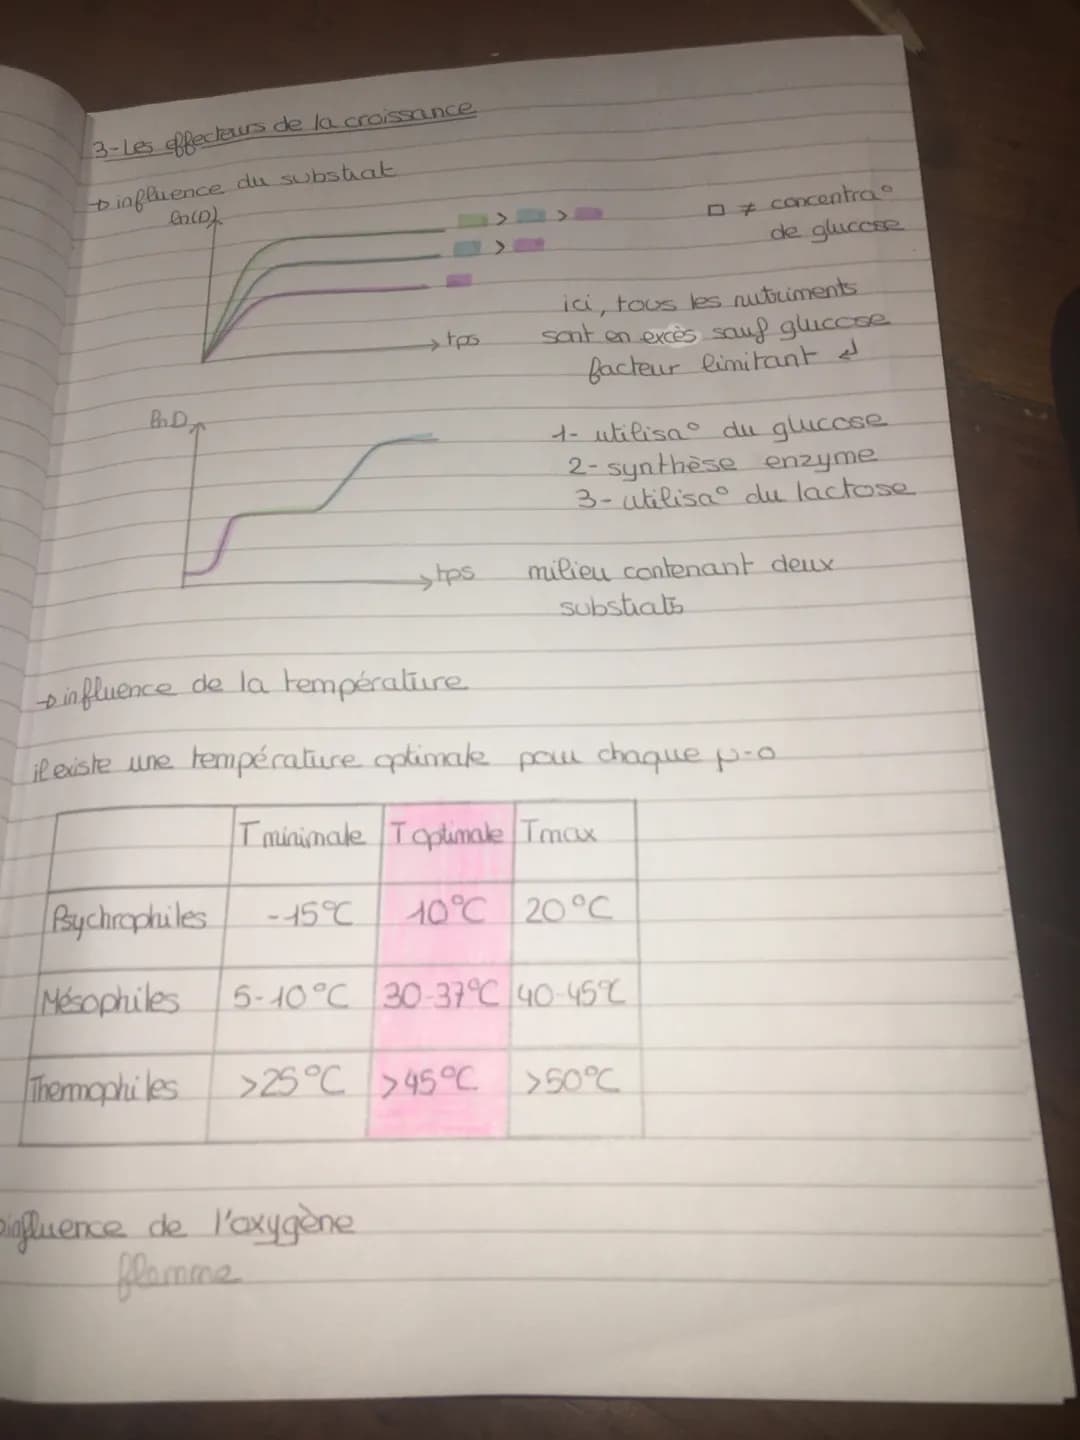 3-Les effecteurs de la croissance
→ influence du substrat
ln(D)
> >
>
tps
□ ≠ concentra°
de glucose
ici, tous les nutriments
sont en excès sauf glucose
facteur limitant ↲
lnD
tps
1- utilisa° du glucose
2- synthèse enzyme
3- utilisa° du lactose
milieu contenant deux
substrats
→ influence de la température
il existe une température optimale pour chaque μ-o
T minimale T optimale Tmax
Psychrophiles -15°C 10°C 20°C
Mésophiles 5-10°C 30-37°C 40-45°C
Thermophiles >25°C >45°C >50°C
influence de l'oxygène
flamme